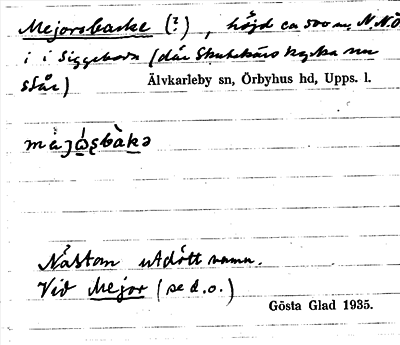 Mejorsbacke (?), höjd ca 500 m, N.N.Ö
i i Siggeboda (där Skutskärs kyrka nu
står)
Älvkarleby sn, Örbyhus hd, Upps. l.
Nästan utdött namn.
Vid Mejor (se d.o.)
Gösta Glad 1935.